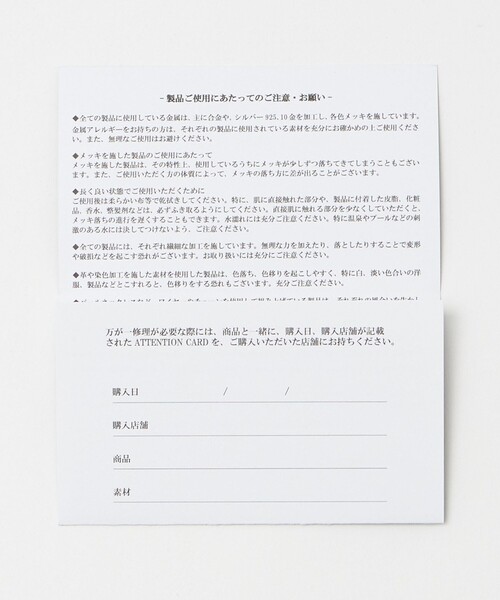 - 製品ご使用にあたってのご注意・お願い -
◆全ての製品に使用している金属は、主に合金や、シルバー925、10金を加工し、各色メッキを施しています。
金属アレルギーをお持ちの方は、それぞれの製品に使用されている素材を充分にお確かめの上ご使用くださ
い。また、無理なご使用はお避けください。
◆メッキを施した製品のご使用にあたって
メッキを施した製品は、その特性上、使用しているうちにメッキが少しずつ落ちてきてしまうこともござい
ます。また、ご使用いただく方の体質によって、メッキの落ち方に差が出ることがございます。
◆長く良い状態でご使用いただくために
ご使用後は柔らかい布等で乾拭きしてください。特に、肌に直接触れた部分や、製品に付着した皮脂、化粧
品、香水、整髪剤などは、必ずふき取るようにしてください。直接肌に触れる部分を少なくしていただくと、
メッキ落ちの進行を遅くすることもできます。水濡れには充分ご注意ください。特に温泉やプールなどの刺激
のある水には決してつけないよう、ご注意ください。
◆全ての製品には、それぞれ繊細な加工を施しています。無理な力を加えたり、落としたりすることで変形
や破損などを起こす恐れがございます。お取り扱いには充分にご注意ください。
◆革や染色加工を施した素材を使用した製品は、色落ち、色移りを起こしやすく、特に白、淡い色合いの洋
服、製品などとこすれると、色移りをする恐れもございます。充分ご注意ください。
万が一修理が必要な際には、商品と一緒に、購入日、購入店舗が記載
された ATTENTION CARD を、ご購入いただいた店舗にお持ちください。
購入日 / /
購入店舗
商品
素材